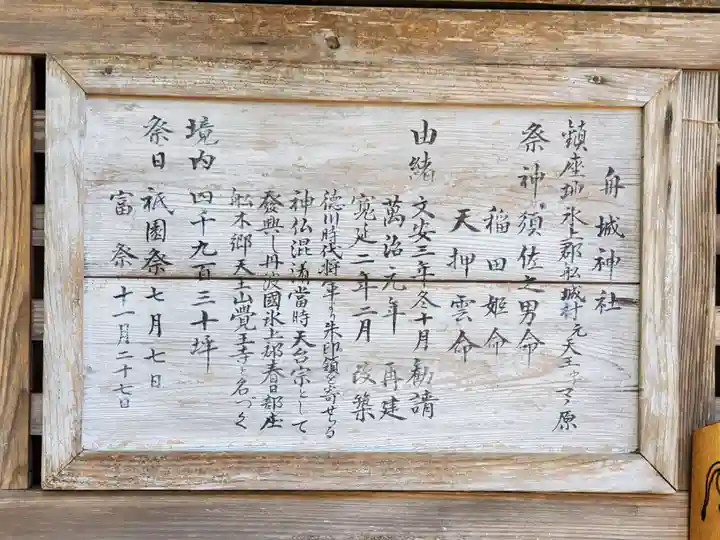 舟城神社
鎮座地 氷上郡船城村元天王字マヽ原
祭神 須佐之男命
稲田姫命
天押雲命
由緒 文安三年冬十月 勧請
萬治元年 再建
寛延二年二月 改築
徳川時代将軍より朱印領を寄せらる
神仏混淆當時天台宗として
發興し丹波國氷上郡春日部座
舩木郷天王山覺王寺と名つく
境内 四千九百三十坪
祭日 祇園祭 七月七日
富祭 十一月二十七日